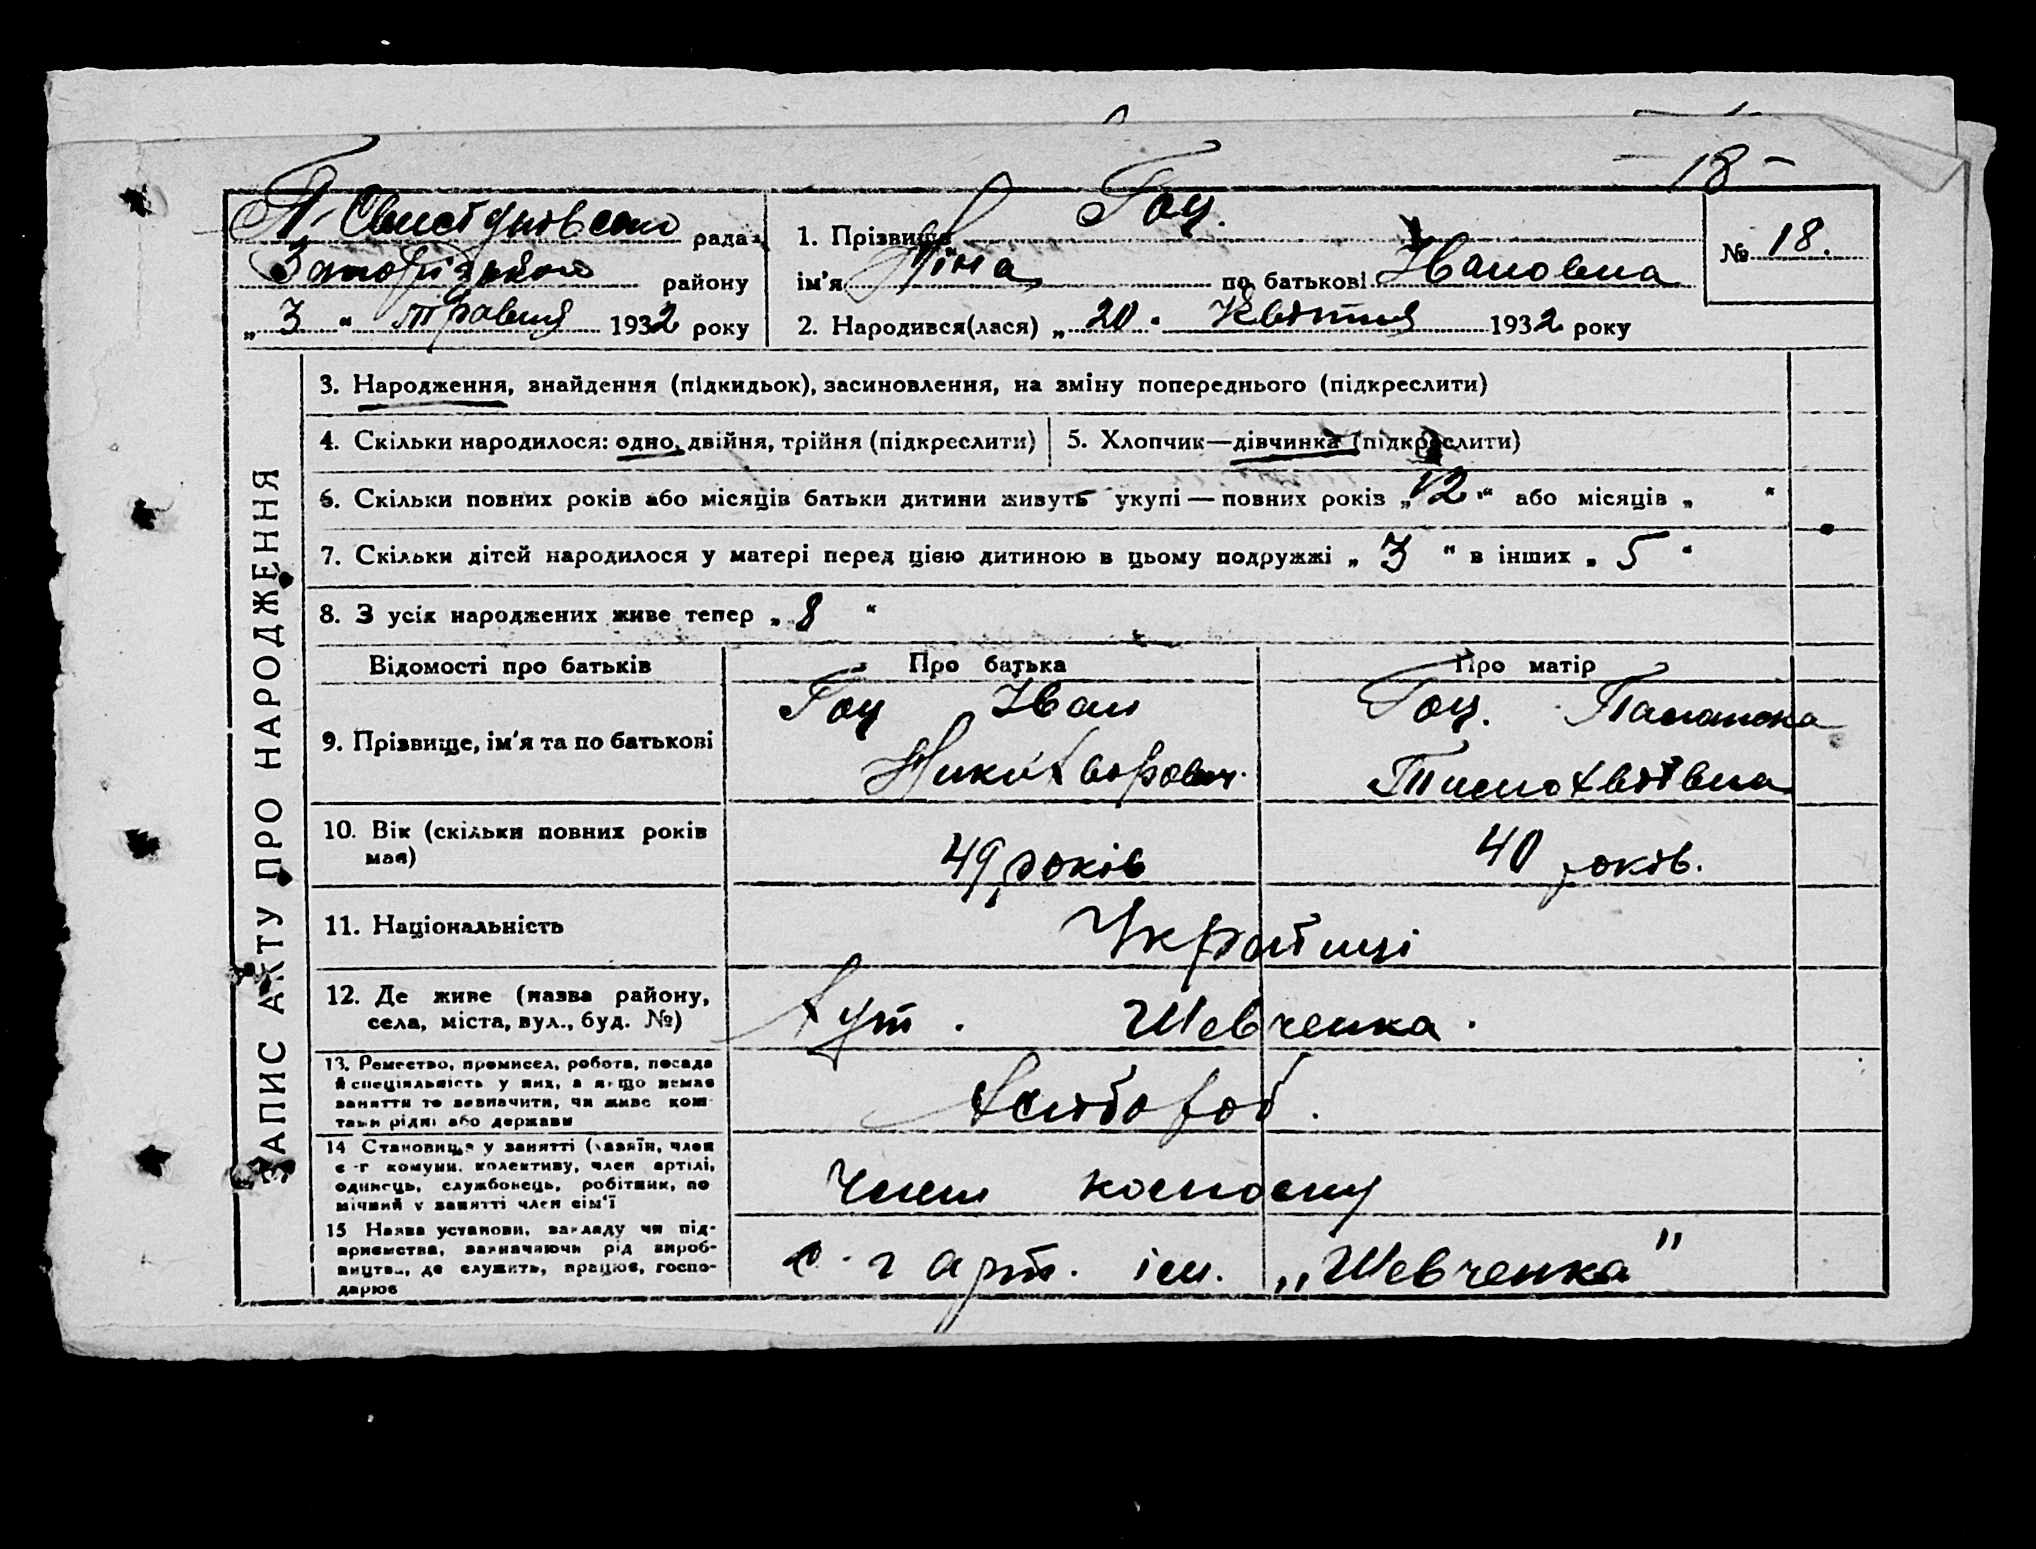 18
П. Свистуновська рада
Запорізького району
„ 3 “ травня 1932 року
1. Прізвище Гоц.
ім'я Ніна по батькові Івановна
№ 18.
2. Народився(лася) „ 20 “ Квітня 1932 року
ЗАПИС АКТУ ПРО НАРОДЖЕННЯ
3. Народження, знайдення (підкидьок), засиновлення, на зміну попереднього (підкреслити)
4. Скільки народилося: одно, двійня, трійня (підкреслити)
5. Хлопчик—дівчинка (підкреслити)
6. Скільки повних років або місяців батьки дитини живуть укупі — повних років „ 12 “ або місяців „ “
7. Скільки дітей народилося у матері перед цією дитиною в цьому подружжі „ 3 “ в інших „ 5 “
8. З усіх народжених живе тепер „ 8 “
Відомості про батьків
Про батька
Про матір
9. Прізвище, ім'я та по батькові
Гоц Іван
Никифорович.
Гоц.
Тимофіївна
10. Вік (скільки повних років
має)
49 років
40 років.
11. Національність
Українці
12. Де живе (назва району,
села, міста, вул., буд. №)
Хут. Шевченка.
13. Ремество, промисел, робота, посада
й спеціяльність у них, а якщо немає
заняття то зазначити, чи живе кош-
тами рідні або держави
Хлібороб.
14 Становище у занятті (хазяїн, член
с-г комуни, колективу, член артілі,
одинець, службовець, робітник, по
мічний у занятті член сім'ї
Член колгоспу
15 Назва установи, закладу чи під-
приємства, зазначаючи рід вироб-
ництва, де служить, працює, госпо-
дарює
с-г арт. ім. „Шевченка"